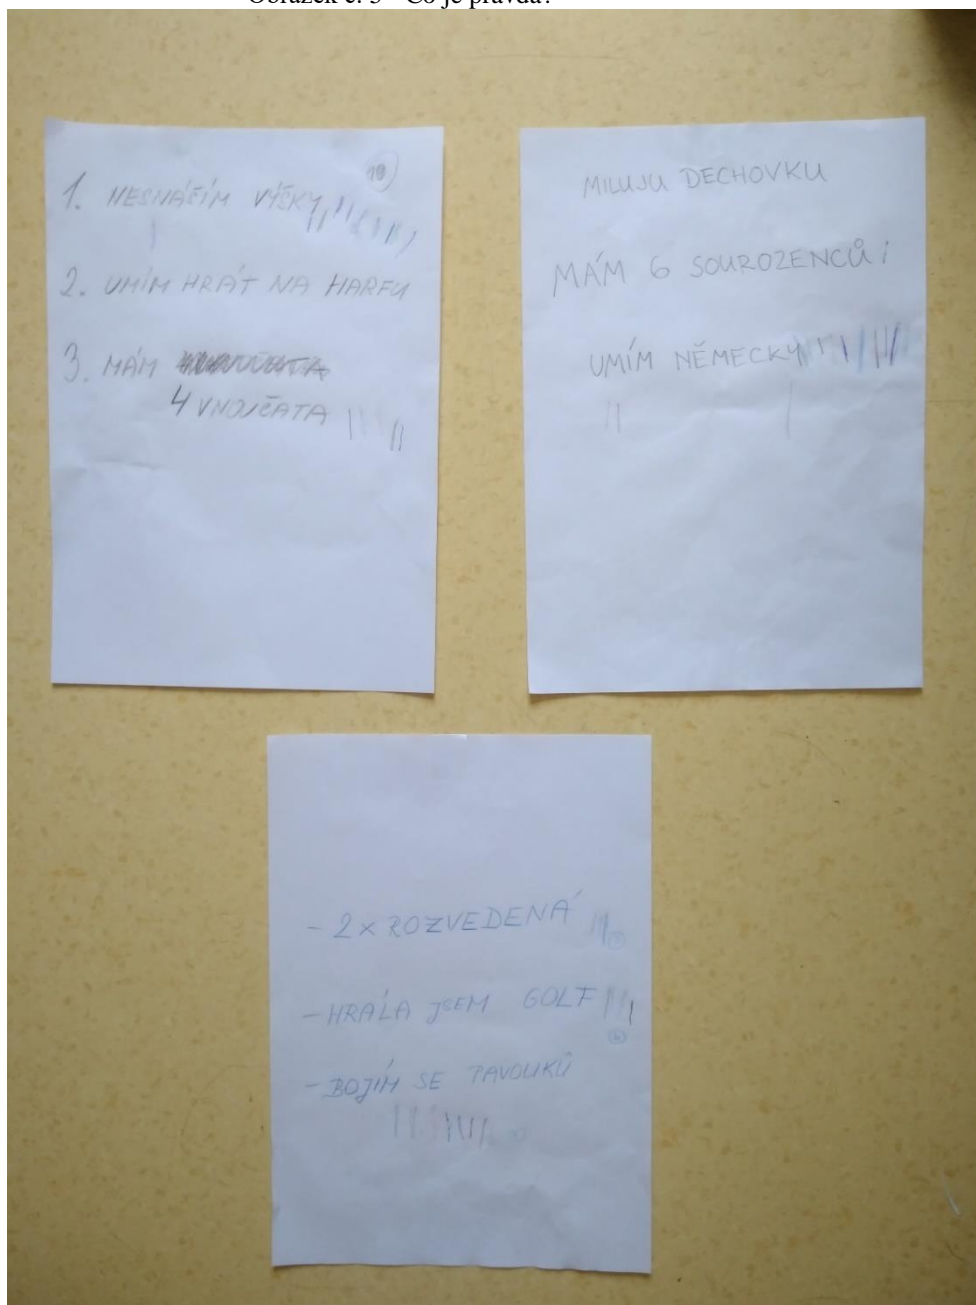 Co je pravda?
10
1. NESNÁŠÍM VÝŠKY
2. UMÍM HRÁT NA HARFU
3. MÁM
4 VNOJČATA
MILUJU DECHOVKU
MÁM 6 SOUROZENCŮ
UMÍM NĚMECKY
- 2x ROZVEDENÁ
- HRÁLA JSEM GOLF
- BOJÍM SE PAVOUKŮ